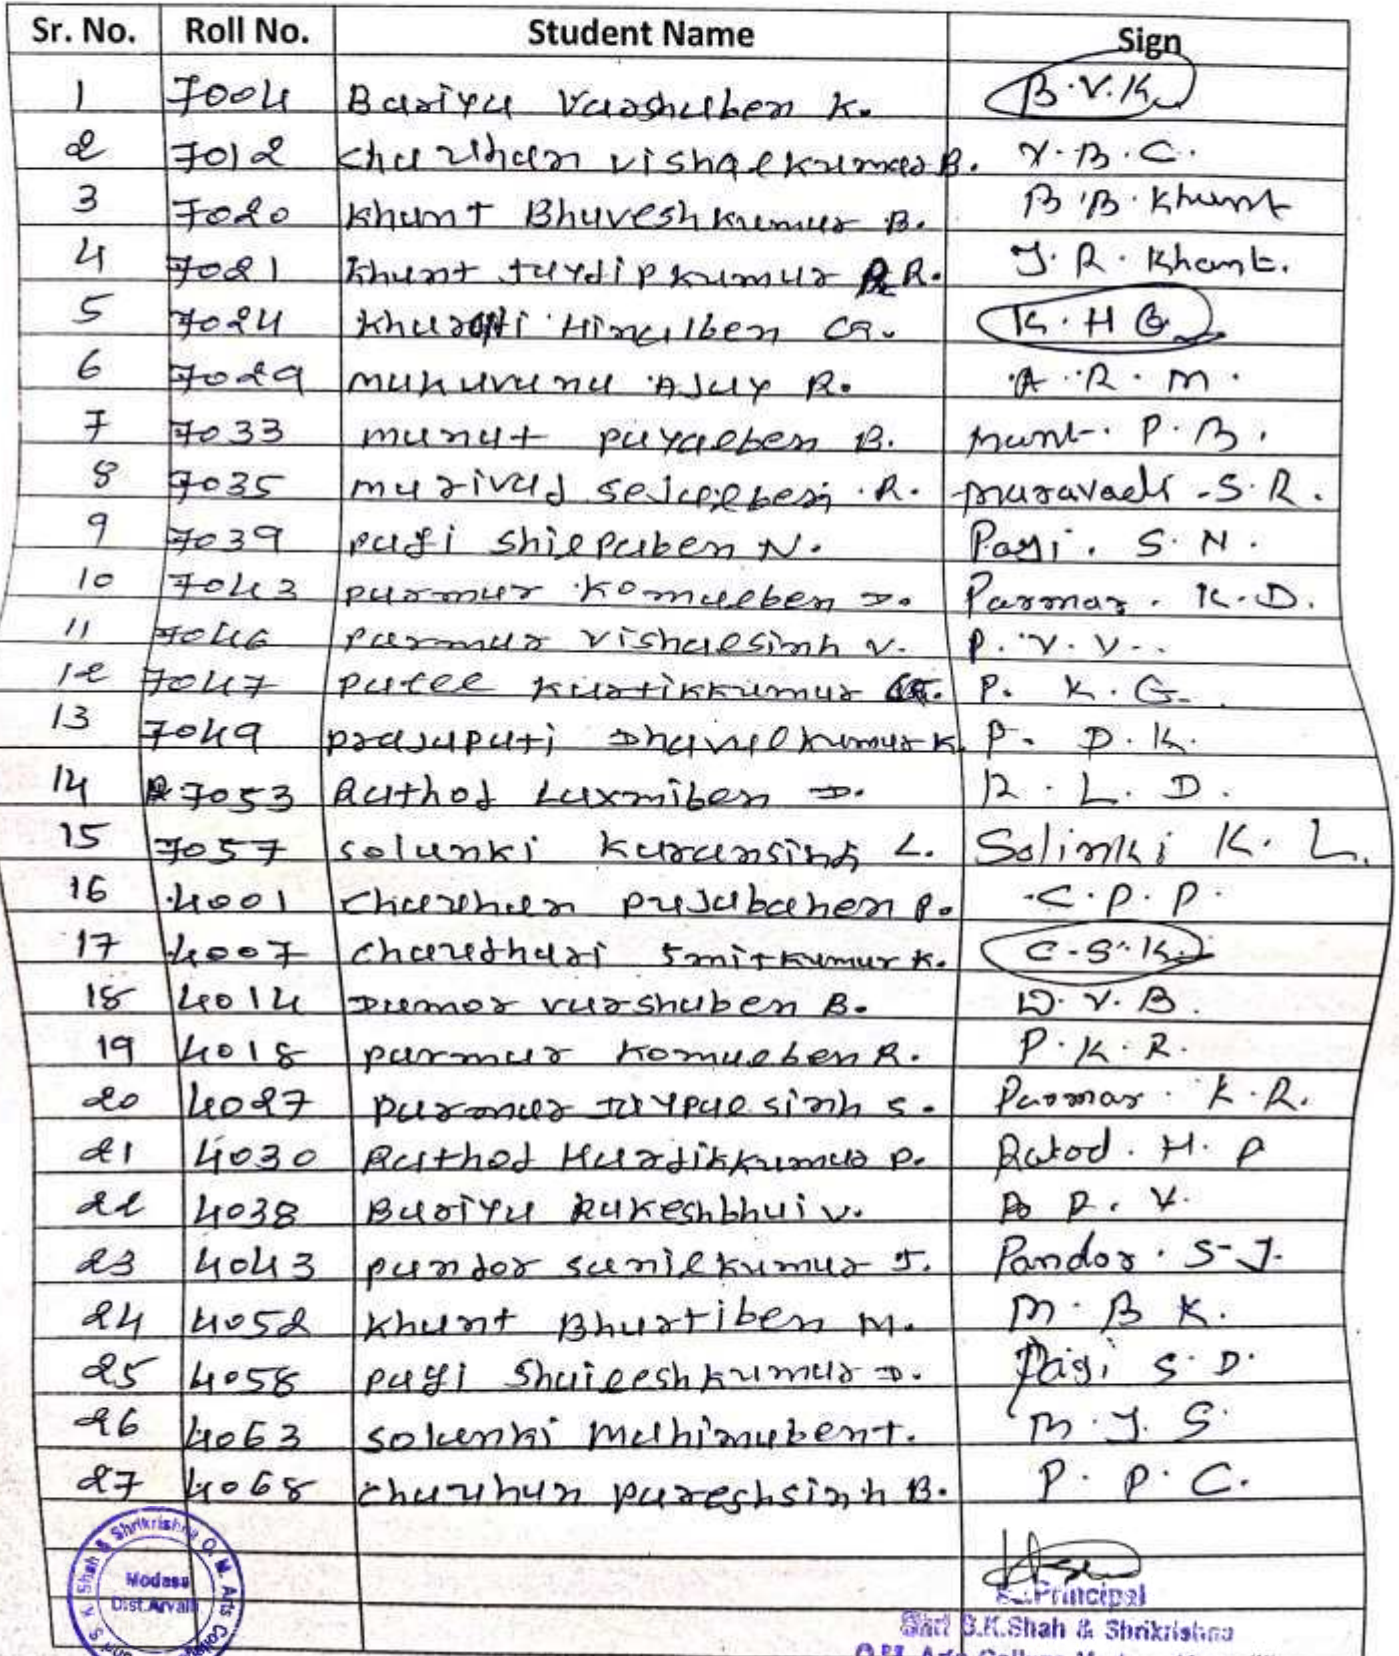 Sr. No. Roll No. Student Name Sign
1 7004 Bariya Varshaben K. B.V.K
2 7012 Chauhan vishalkumar B. V.B.C.
3 7020 Khant Bhaveshkumar B. B.B.Khant
4 7021 Khant Jaydipkumar R. J.R.Khant.
5 7024 Hinalben G. K.H G
6 7029 Makavana Ajay R. A.R.M.
7 7033 Manat payalben B. Mant. P.B.
8 7035 Marivad Sejalben .R. Maravadi -S.R.
9 7039 pagi Shilpaben N. Pagi. S.N.
10 7043 parmar Komalben D. Parmar. K.D.
11 7046 parmar Vishalsinh V. P.V.V..
12 7047 patel Kartikkumar G. P. K.G.
13 7049 prajapati Dhavalkumar K. P. D.K.
14 7053 Rathod Laxmiben D. R.L.D.
15 7057 solanki Karansinh L. Solinki K.L.
16 4001 Chauhan pujabahen P. C.P.P.
17 4007 Chaudhari Smitkumar K. C.S.K.
18 4014 Damor varshaben B. D.V.B.
19 4018 parmar Komalben R. P.K.R.
20 4027 parmar Jaypalsinh S. Parmar. K.R.
21 4030 Rathod Hardikkumar P. Ratod. H.P
22 4038 Bariya Rakeshbhai V. B R.V.
23 4043 pandor sanilkumar J. Pandor. S-J.
24 4052 Khant Bhartiben M. M.B K.
25 4058 pagi Shaileshkumar D. Pagi S.D.
26 4063 solanki Mahimaben J. M.J.S.
27 4068 Chauhan pareshsinh B. P.P.C.
Shah & Shrikrishna O. M. Arts
Modasa
Dist.Arvalli
Principal
Shri S.K.Shah & Shrikrishna
O.M. Arts College